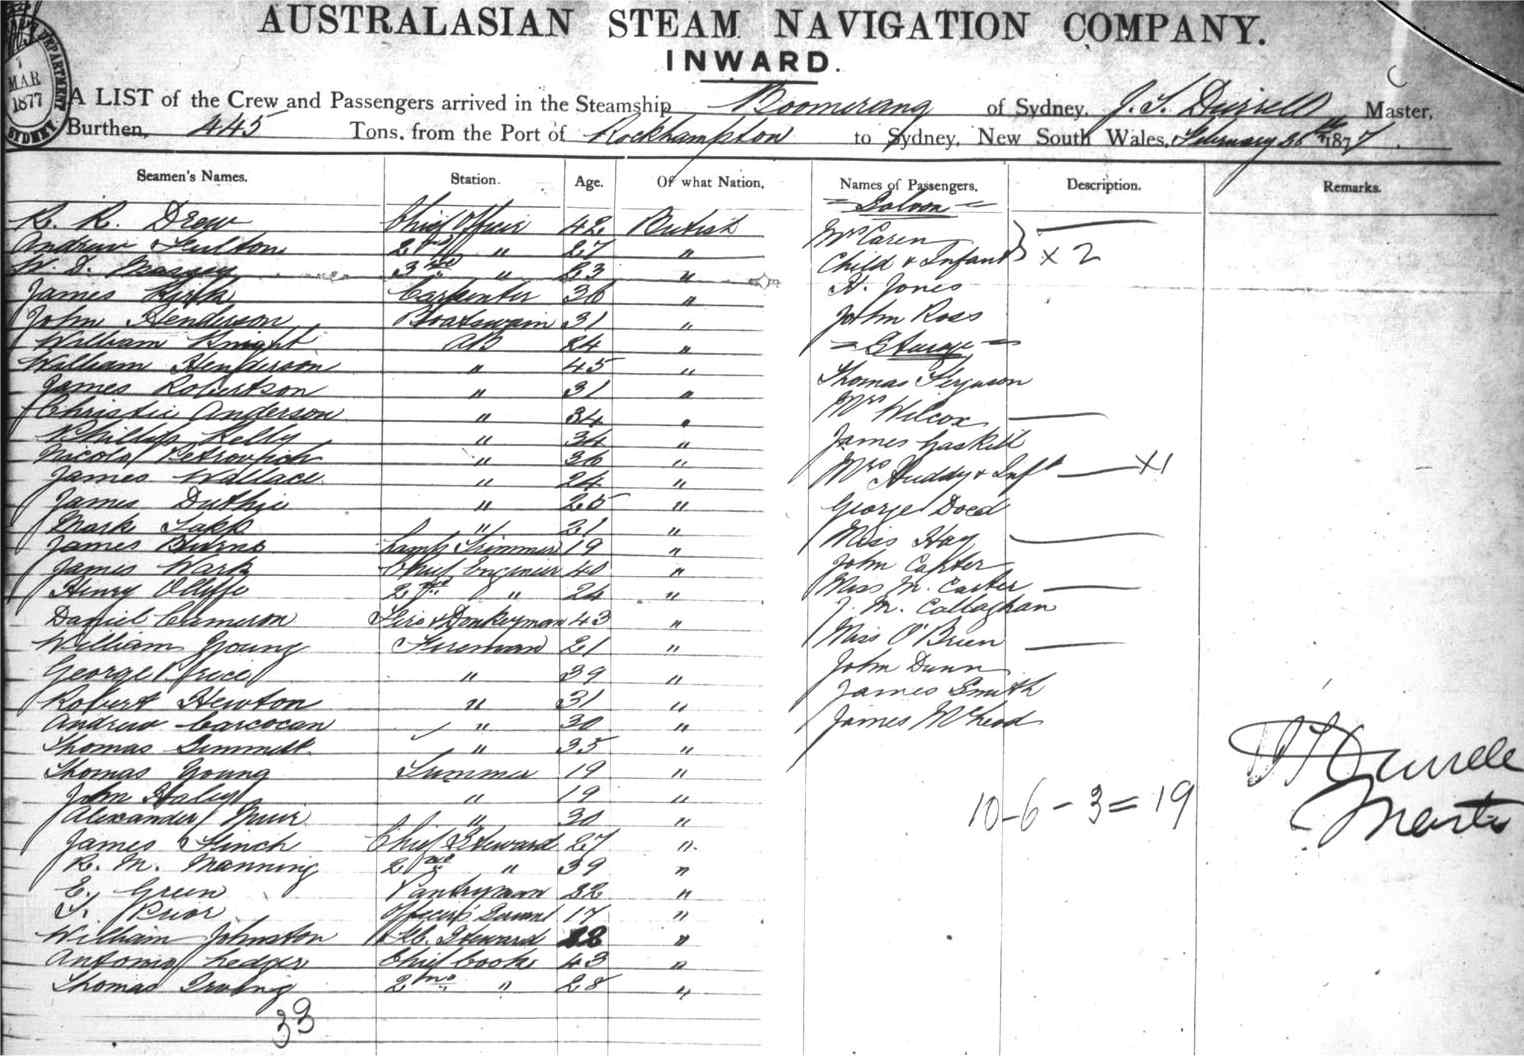 AUSTRALASIAN STEAM NAVIGATION COMPANY.
INWARD.
DEPARTMENT
MAR
1877
SYDNEY
A LIST of the Crew and Passengers arrived in the Steamship Boomerang of Sydney, Master,
Burthen, 445 Tons, from the Port of Rockhampton to Sydney, New South Wales, February 1877
Seamen's Names. Station. Age. Of what Nation. Names of Passengers. Description. Remarks.
= Saloon =
R. R. Drew Chief Officer 42 British
Mrs Caren
Andrew Fulton 2nd " 27 "
Child & Infant x 2
W. D. 3rd " 23 "
H. Jones
James Kirk Carpenter 36 "
John Henderson Boatswain 31 "
John Ross
William Knight AB 24 "
= Steerage =
William Henderson " 45 "
Thomas Ferguson
James Robertson " 31 "
Mrs Wilcox
Christie Anderson " 34 "
Phillip Kelly " 34 "
James Gaskill
Nicola Petrovich " 36 "
Mrs Huddy & Inft x1
James Wallace " 24 "
James Duthie " 25 "
George Doed
Mark Tapp " 21 "
Miss Hay
James Burns Lamp Trimmer 19 "
John Carter
James Wark Chief Engineer 40 "
Miss M. Carter
Henry Olliffe 2nd " 24 "
J. M. Callaghan
Daniel Cameron Fire & Donkeyman 43 "
Miss O'Brien
William Young Fireman 21 "
John Dunn
George Price " 39 "
James Smith
Robert Newton " 31 "
James McLeod
Andrew Carcocan " 30 "
Thomas " 35 "
Thomas Young Trimmer 19 "
John Haley " 19 "
10-6-3=19
Alexander Muir " 30 "
James Finch Chief Steward 27 "
R. M. Manning 2nd " 39 "
E. Green Pantryman 32 "
T. Prior Officers' Servant 17 "
William Johnston Steward "
Antonio Ledger Chief Cook 43 "
Thomas Irving 2nd " 28 "
33